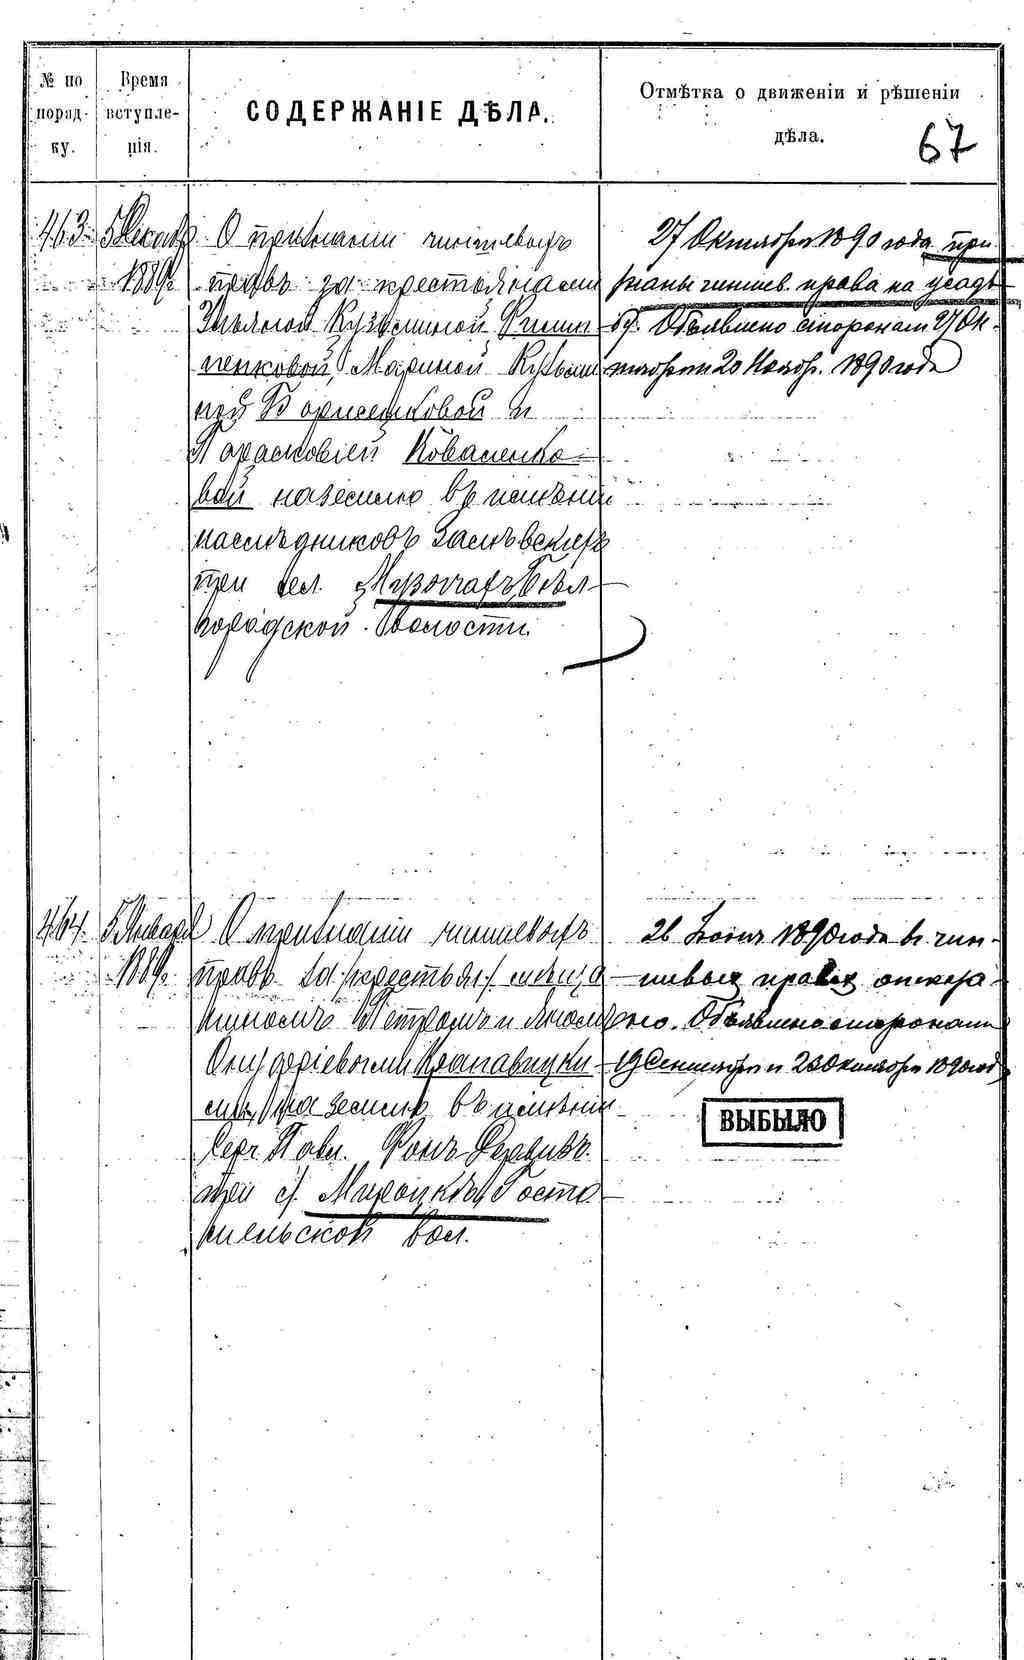 № по порядку.
Время вступленія.
СОДЕРЖАНІЕ ДѢЛА.
Отмѣтка о движеніи и рѣшеніи
дѣла.
67
463.
1889г.
О признаніи чиншевыхъ
правъ за крестьянами
Кузьминой
Мариной Кузьми
ной Борисенковой и
Парасковіей Коваленко-
вой на землю въ имѣніи
наслѣдниковъ
при сел. Музычахъ, Бѣл-
городской волости.
27 Октября 1890 года при
знаны чиншев. права на усадь
бу. Объявлено сторонам 27 Ок-
тября и 20 Ноябр. 1890 года
464.
5 Января
1889г.
О признаніи чиншевыхъ
правъ за
Петромъ и
на землю въ имѣніи
Фонъ-Дервизъ
при с. Мироцкѣ, Госто
мельской вол.
26 1890 года въ чин-
шевых правах отказа-
но. Объявлено сторонам
19 Сентября и 23 Октября 1890 год
ВЫБЫЛО